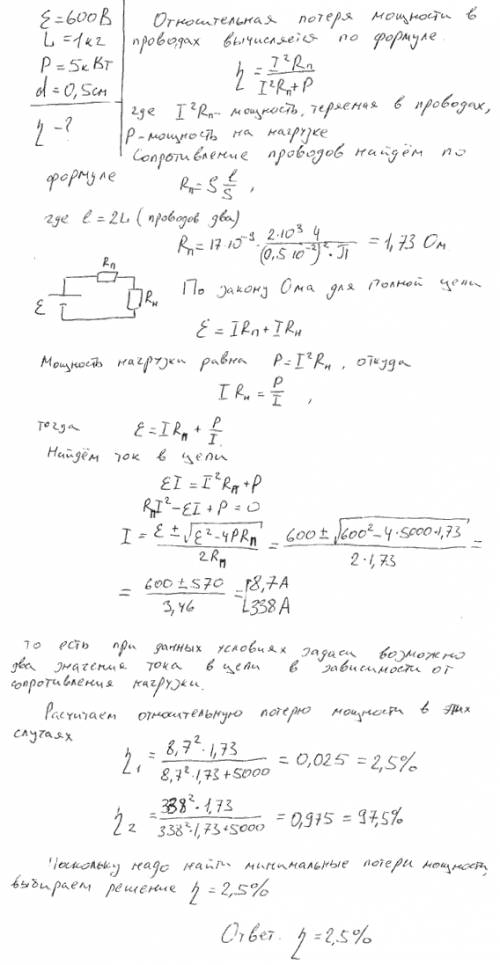 ℰ = 600В
L = 1кг
P = 5кВт
d = 0,5см
η - ?
Относительная потеря мощности в
проводах вычисляется по формуле.
η = I²Rп / (I²Rп + P)
где I²Rп - мощность, теряемая в проводах,
P - мощность на нагрузке
Сопротивление проводов найдём по
формуле Rп = ρ l/S ,
где l = 2L (проводов два)
Rп = 17·10⁻⁹ · 2·10³ 4 / ((0,5 10⁻²)² · π) = 1,73 Ом
Rп
ℰ
Rн
По закону Ома для полной цепи
ℰ = IRп + IRн
Мощность нагрузки равна P = I²Rн , откуда
I Rн = P/I ,
тогда ℰ = IRп + P/I.
Найдём ток в цепи
ℰI = I²Rп + P
RпI² - ℰI + P = 0
I = (ℰ ± √(ℰ² - 4PRп)) / 2Rп = (600 ± √(600² - 4·5000·1,73)) / (2·1,73) =
= (600 ± 570) / 3,46 = [8,7А
338А
то есть при данных условиях задачи возможно
два значения тока в цепи в зависимости от
сопротивления нагрузки.
Расчитаем относительную потерю мощности в этих
случаях
η₁ = 8,7²·1,73 / (8,7²·1,73+5000) = 0,025 = 2,5%
η₂ = 338²·1,73 / (338²·1,73+5000) = 0,975 = 97,5%
Поскольку надо найти минимальные потери мощности,
выбираем решение η = 2,5%
Ответ. η = 2,5%